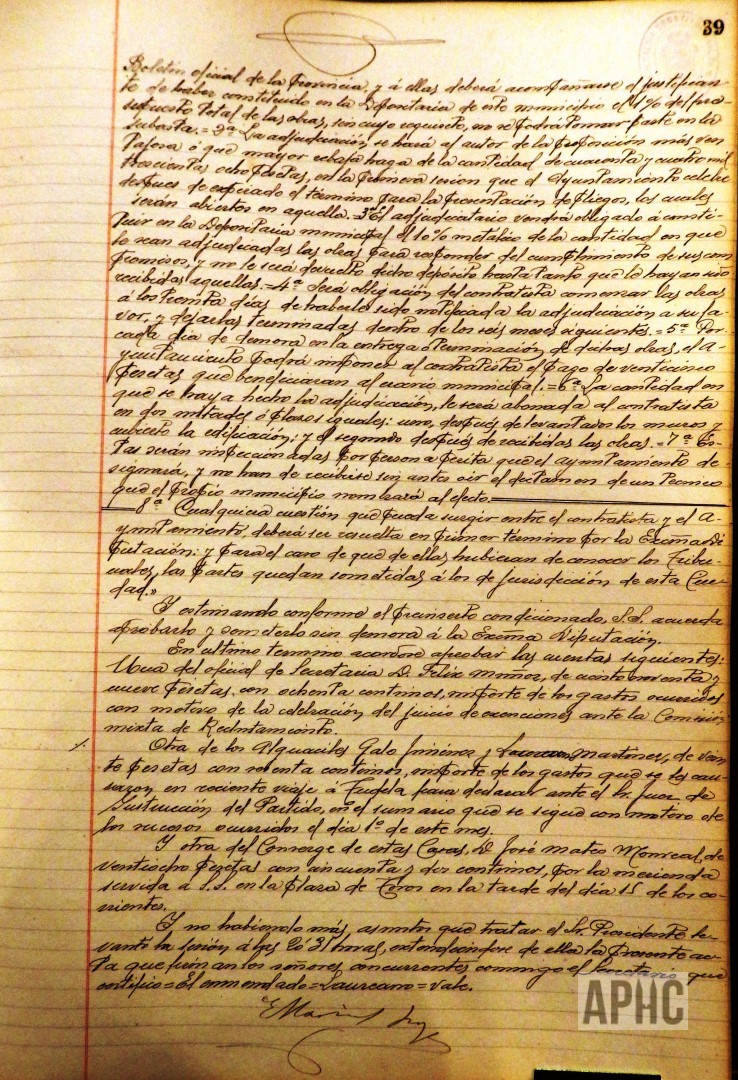 39
Boletin oficial de la Provincia, y á ellas deberá acompañarse el justifican-
te de haber constituido en la Depositaria de este municipio el 1% del pre-
supuesto total de las obras, sin cuyo requisito, no se podrá tomar parte en la
subasta.=2ª La adjudicación, se hará al autor de la proposición más ven
tajosa ó que mayor rebaja haga de la cantidad de cuarenta y cuatro mil
trescientas ocho pesetas, en la primera sesion que el Ayuntamiento celebre
despues de espirado el término para la presentación de pliegos, los cuales
serán abiertos en aquella.=3ª El adjudicatario vendrá obligado á consti-
tuir en la Depositaria municipal el 10% metálico de la cantidad en que
le sean adjudicadas las obras para responder del cumplimiento de sus com
promisos, y no le será devuelto dicho depósito hasta tanto que le hayan sido
recibidas aquellas.=4ª Será obligación del contratista comenzar las obras
á los treinta dias de haberle sido notificada la adjudicación a su fa-
vor, y dejarlas terminadas dentro de los seis meses siguientes.=5ª Por
cada dia de demora en la entrega ó terminación de dichas obras, el A-
yuntamiento podrá imponer al contratista el pago de veinticinco
pesetas que beneficiaran al erario municipal.=6ª La cantidad en
que se haya hecho la adjudicación, le será abonada al contratista
en dos mitades ó plazos iguales: uno, después de levantados los muros y
cubierto la edificación; y el segundo después de recibidas las obras.=7ª Es-
tas serán inspeccionadas por persona perita que el ayuntamiento de-
signará, y no han de recibirse sin antes oir el dictamen de un Tecnico
que el propio municipio nombrará al efecto.
8ª Cualquiera cuestión que pueda surgir entre el contratista y el A-
yuntamiento, deberá ser resuelta en primer término por la Excma Di
putación; y para el caso de que de ellas hubieran de conocer los Tribu-
nales, las partes quedan sometidas á los de jurisdicción de esta Ciu-
dad.»
Y estimando conforme el preinserto condicionado, S.S. acuerda
aprobarlo y someterlo sin demora á la Excma Diputación.
En ultimo termino acordóse aprobar las cuentas siguientes:
Una del oficial de Secretaria D. Felix Muñoz, de ciento noventa y
nueve pesetas con ochenta centimos, importe de los gastos ocurridos
con motivo de la celebración del juicio de exenciones ante la Comisión
mixta de Reclutamiento.
Otra de los Alguaciles Galo Jiménez y Laureano Martinez, de vein
te pesetas con noventa centimos, importe de los gastos que se les cau-
saron en reciente viaje á Tudela para declarar ante el Sr. Juez de
Instrucción del Partido, en el sumario que se sigue con motivo de
los sucesos ocurridos el día 1º de este mes.
Y otra del Conserge de estas Casas, D. José Mateo Monreal, de
veintiocho pesetas con cincuenta y dos centimos, por la merienda
servida á S.S. en la plaza de Toros en la tarde del dia 15 de los co-
rrientes.
Y no habiendo más asuntos que tratar el Sr. Presidente le-
vantó la sesión á las 20 y 31 horas, extendiéndose de ella la presente ac-
ta que firman los señores concurrentes conmigo el Secretario que
certifico=El enmendado=Laureano=vale.
APHC